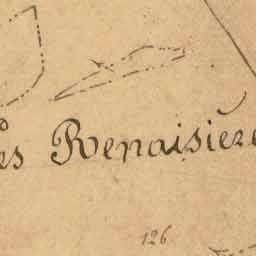 es Renaisière
126